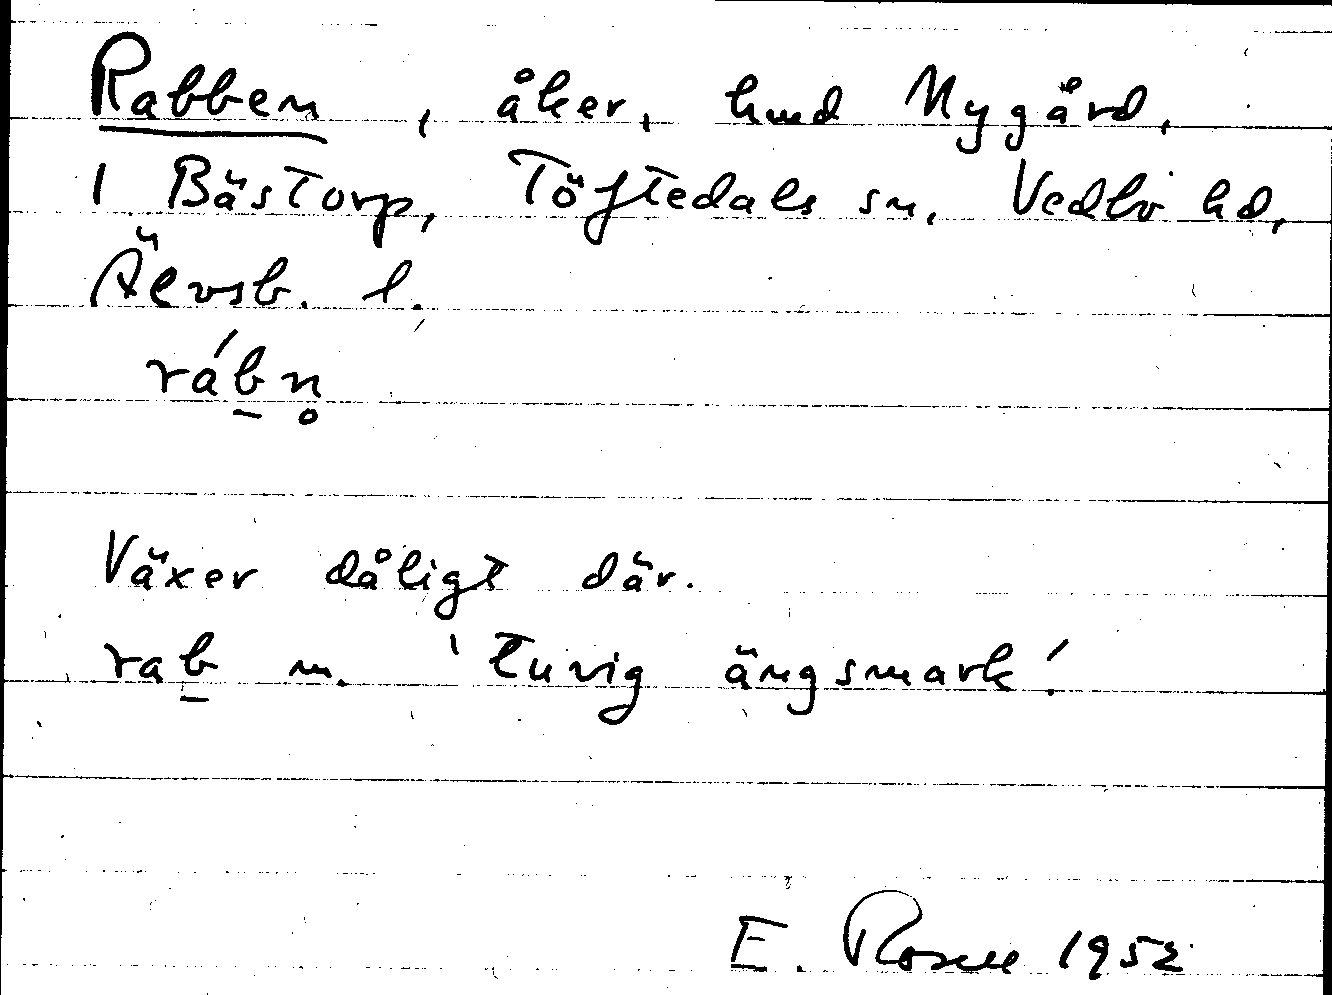 Rabben, åker, hmd Nygård,
1 Bästorp, Töftedals sn, Vedbo hd,
Älvsb. l.
rábn̥
Växer dåligt där.
rab m. 'tuvig ängsmark'.
E. Rosell 1952